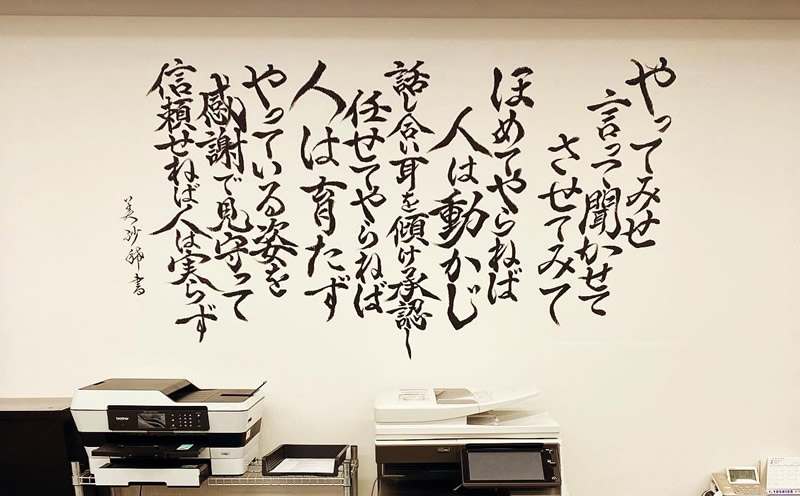 やってみせ
言って聞かせて
させてみて
ほめてやらねば
人は動かじ
話し合い耳を傾け承認し
任せてやらねば
人は育たず
やっている姿を
感謝で見守って
信頼せねば人は実らず
brother